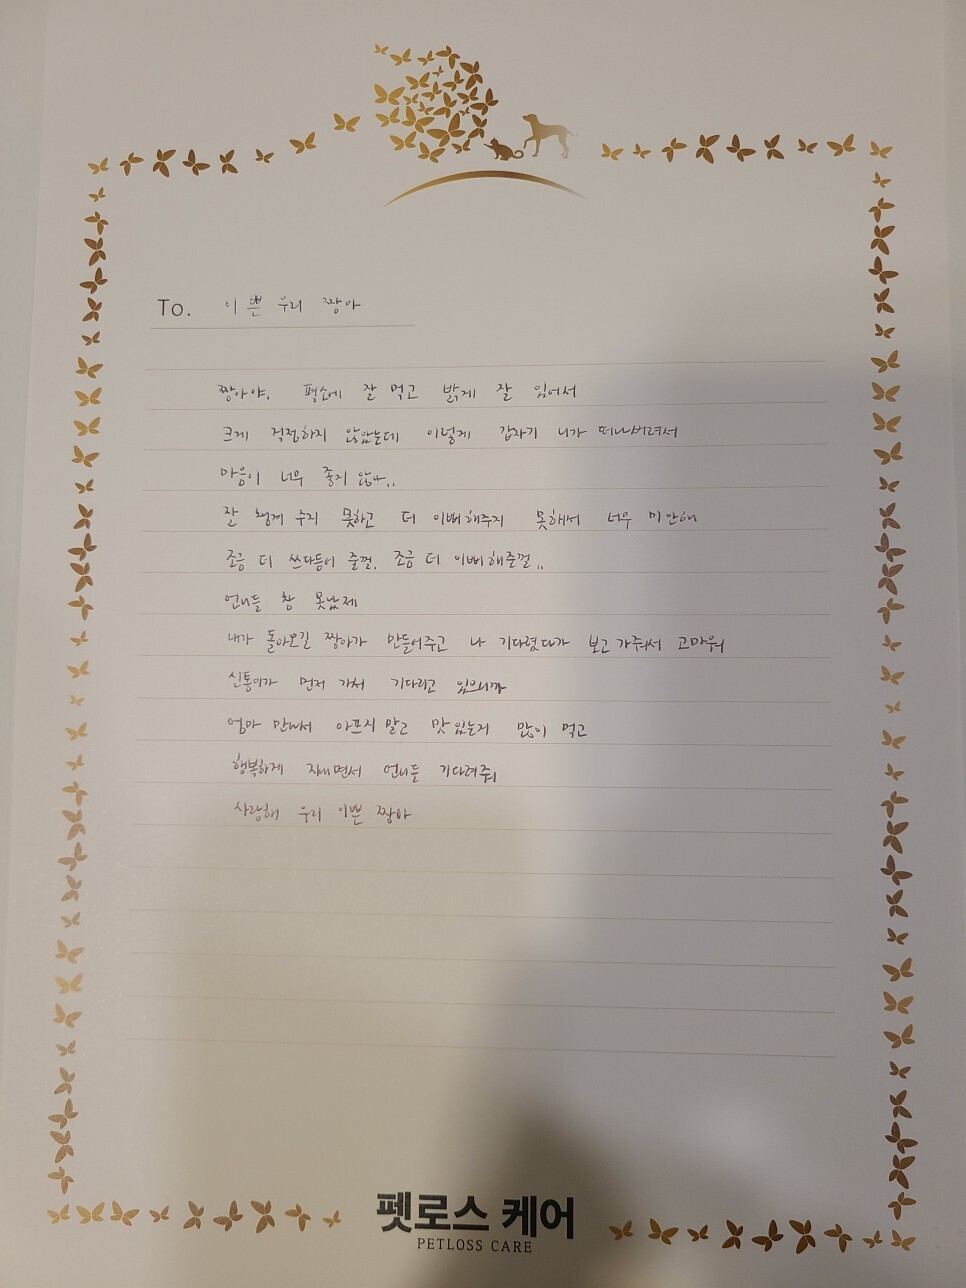 To. 이쁜 우리 짱아
짱아야, 평소에 잘 먹고 밝게 잘 있어서
크게 걱정하지 않았는데 이렇게 갑자기 니가 떠나버려서
마음이 너무 좋지 않아..
잘 챙겨 주지 못하고 더 이뻐해주지 못해서 너무 미안해
조금 더 쓰다듬어 줄껄, 조금 더 이뻐해줄껄..
언니들 참 못났제
내가 돌아오길 짱아가 만들어주고 나 기다렸다가 보고 가줘서 고마워
신통이가 먼저 가서 기다리고 있으니까
엄마 만나서 아프지 말고 맛있는거 많이 먹고
행복하게 지내면서 언니들 기다려줘
사랑해 우리 이쁜 짱아
펫로스 케어
PETLOSS CARE